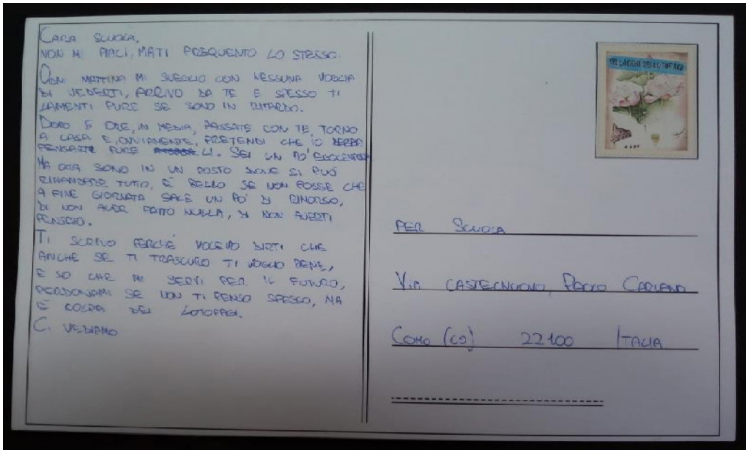 CARA SCUOLA,
NON MI PIACI, MA TI FREQUENTO LO STESSO.
OGNI MATTINA MI SVEGLIO CON NESSUNA VOGLIA
DI VEDERTI, ARRIVO DA TE E SPESSO TI
LAMENTI PURE SE SONO IN RITARDO.
DOPO 5 ORE, IN MEDIA, PASSATE CON TE, TORNO
A CASA E, OVVIAMENTE, PRETENDI CHE IO DEBBA
PENSARTI PURE LÌ. SEI UN PO'
MA ORA SONO IN UN POSTO DOVE SI PUÒ
RIMANDARE TUTTO, E BELLO SE NON FOSSE CHE
A FINE GIORNATA SALE UN PO' DI RIMORSO,
DI NON AVER FATTO NULLA, DI NON AVERTI
PENSATO.
TI SCRIVO PERCHÉ VOLEVO DIRTI CHE
ANCHE SE TI TRASCURO TI VOGLIO BENE,
E SO CHE MI SERVI PER IL FUTURO,
PERDONAMI SE NON TI PENSO SPESSO, MA
È COLPA DEI LOTOFAGI.
C. VEDIAMO
PER SCUOLA
VIA CASTELNUOVO,
COMO (CO) 22100 ITALIA